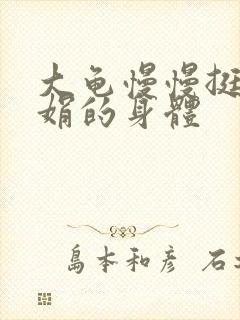 大龟慢慢挺
娟的身體
島本和彦 石